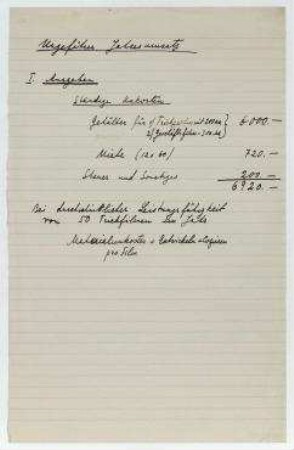 Ungefährer Jahresumsatz
I. Ausgaben
Ständige Unkosten
Gehälter für 1/ Trickzeichner 200 M } 6000.-
2/ Geschäftsführ. 300 M
Miete (12 x 60) 720.-
Steuer und Sonstiges 200.-
6920.-
Bei durchschnittlicher Leistungsfähigkeit
von 50 Trickfilmen im Jahr
Materialunkosten + Entwickeln + Kopieren
pro Film